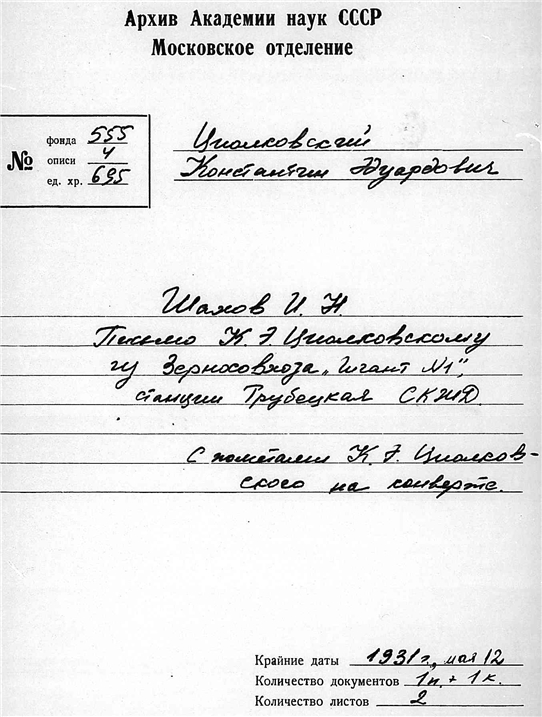 Архив Академии наук СССР
Московское отделение
№
фонда 555
описи 4
ед. хр. 695
Циолковский
Константин Эдуардович
Шахов И. Н.
Письмо К. Э. Циолковскому
из Зерносовхоза „Гигант №1",
станции Трубецкая СКЖД.
С пометами К. Э. Циолков-
ского на конверте.
Крайние даты 1931 г., мая 12
Количество документов 1п. + 1к.
Количество листов 2